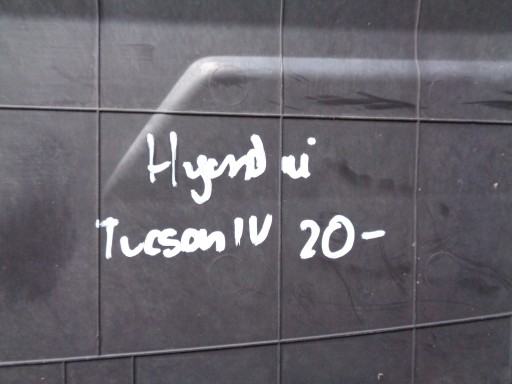 Hyundai
Tucson IV 20-